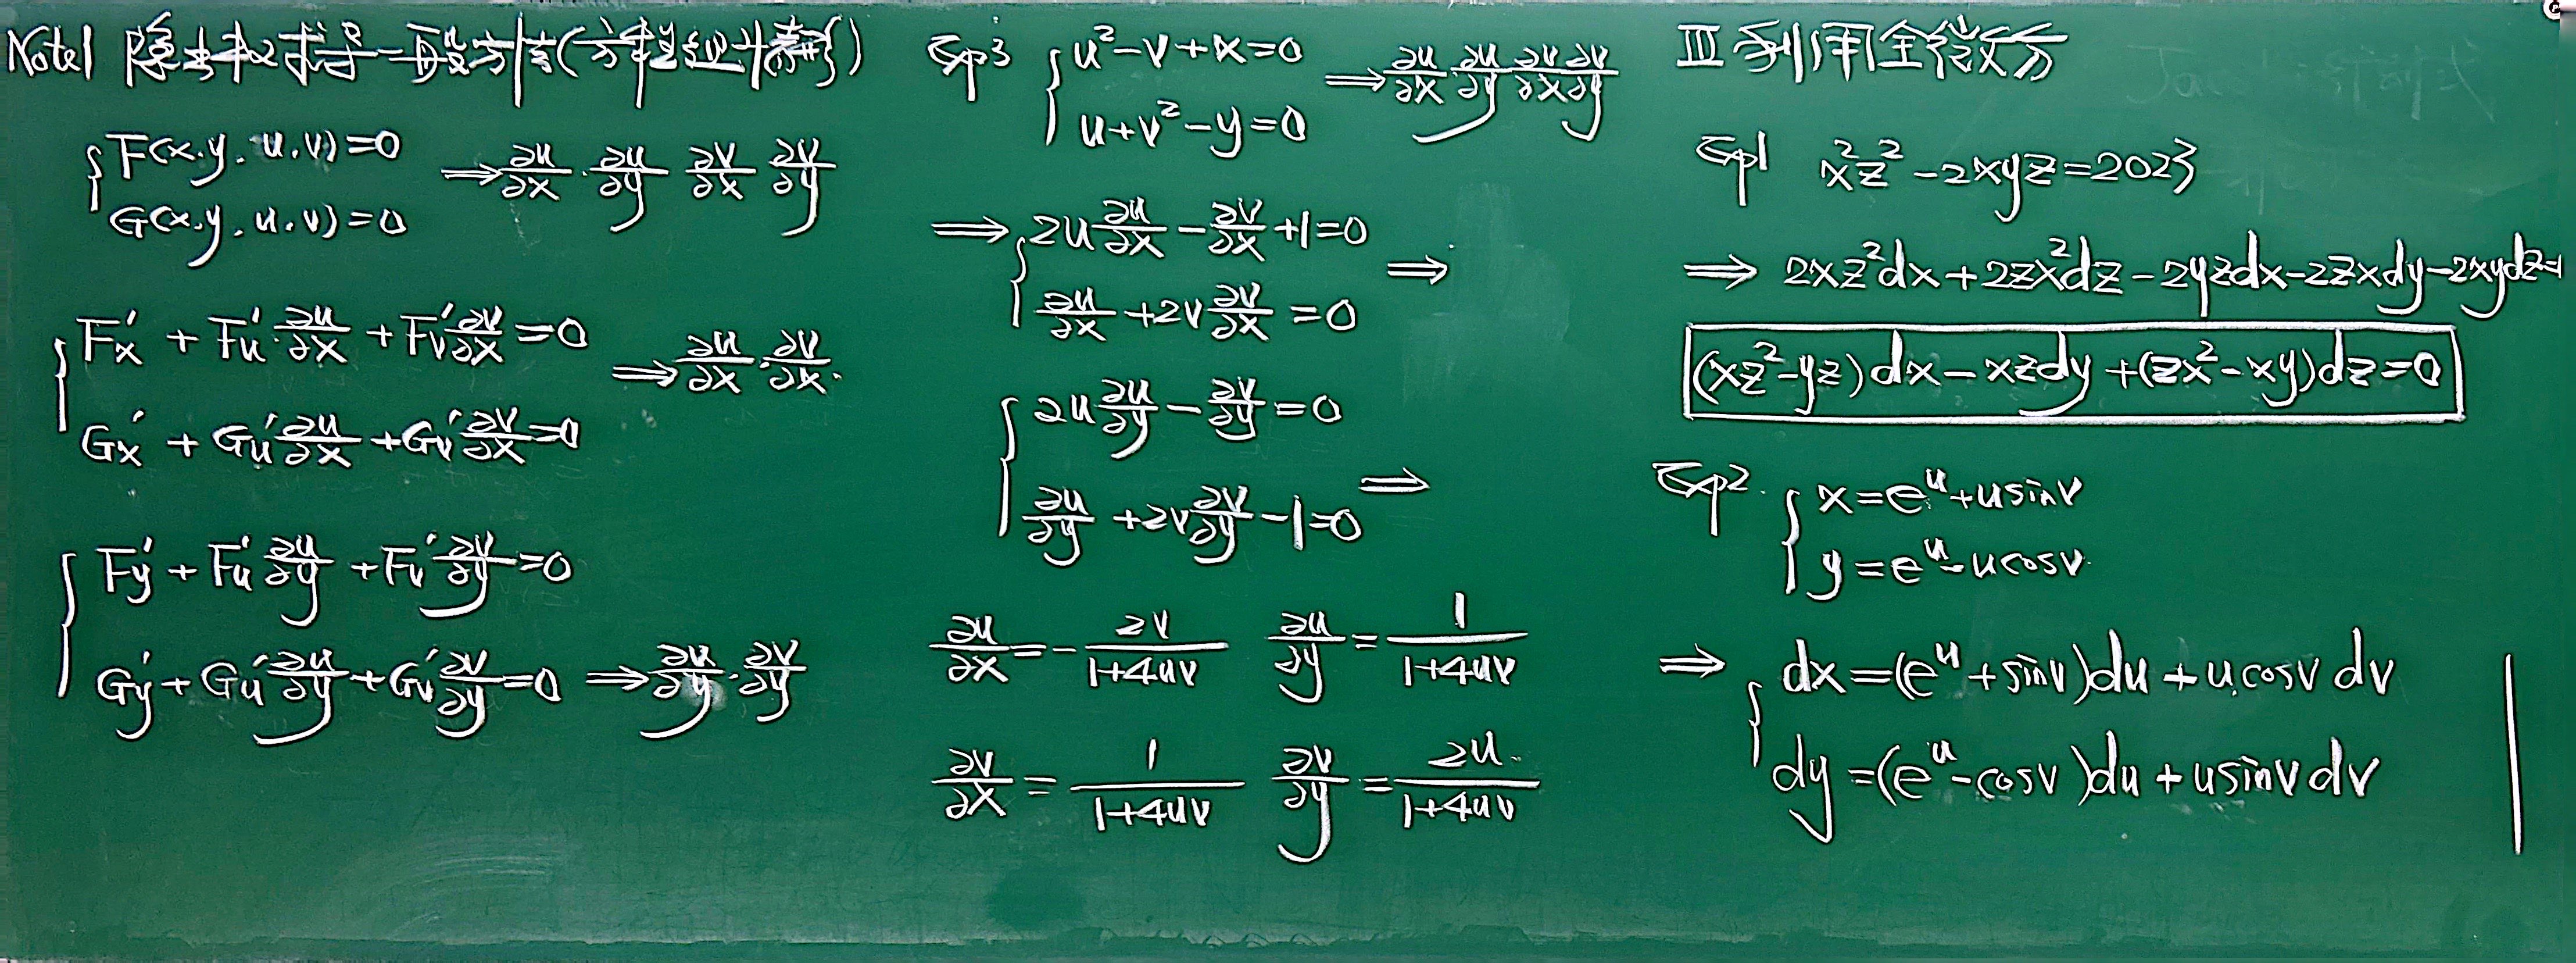 Note1 隐函数求导一般方法(方程组情形)
{F(x.y.u.v)=0
G(x.y.u.v)=0 ⟹ ∂u/∂x · ∂u/∂y ∂v/∂x ∂v/∂y
{Fx′ + Fu′·∂u/∂x + Fv′∂v/∂x =0
Gx′ + Gu′∂u/∂x + Gv′∂v/∂x =0 ⟹ ∂u/∂x · ∂v/∂x.
{Fy′ + Fu′∂u/∂y + Fv′∂v/∂y =0
Gy′ + Gu′∂u/∂y + Gv′∂v/∂y =0 ⟹ ∂u/∂y · ∂v/∂y
Exp3 {u²−v+x=0
u+v²−y=0 ⟹ ∂u/∂x ∂u/∂y ∂v/∂x ∂v/∂y
⟹ {2u∂u/∂x − ∂v/∂x +1=0
∂u/∂x +2v∂v/∂x =0 ⟹
{2u∂u/∂y − ∂v/∂y =0
∂u/∂y +2v∂v/∂y −1=0 ⟹
∂u/∂x = − 2v/(1+4uv) ∂u/∂y = 1/(1+4uv)
∂v/∂x = 1/(1+4uv) ∂v/∂y = 2u/(1+4uv)
III 利用全微分
Exp1 x²z²−2xyz=2023
⟹ 2xz²dx+2zx²dz−2yzdx−2zxdy−2xydz=
(xz²−yz)dx−xzdy+(zx²−xy)dz=0
Exp2. {x=eᵘ+usinv
y=eᵘ−ucosv
⟹ {dx=(eᵘ+sinv)du+ucosvdv
dy=(eᵘ−cosv)du+usinvdv